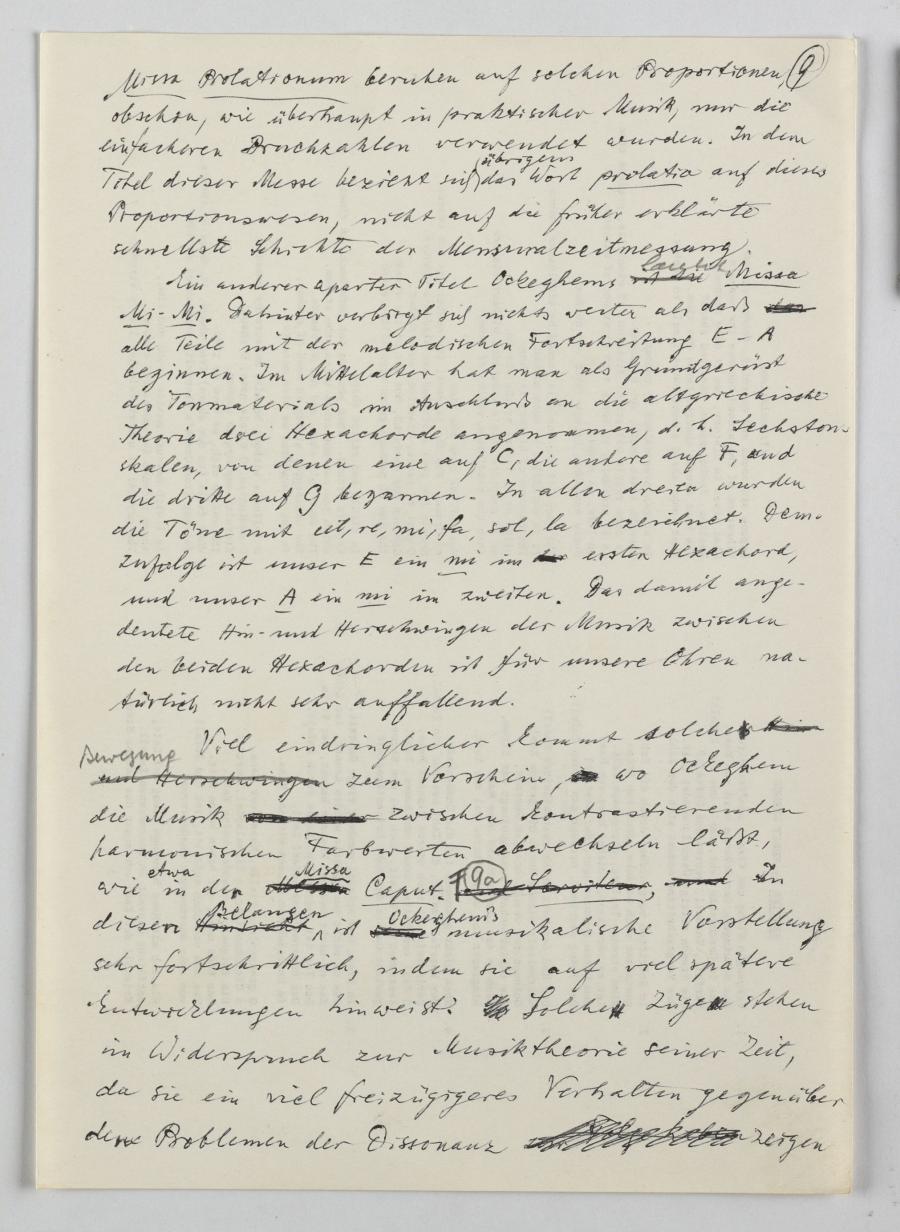 Missa Prolationum beruhen auf solchen Proportionen, 9
obschon, wie überhaupt in praktischer Musik, nur die
einfacheren Bruchzahlen verwendet wurden. In dem
übrigens
Titel dieser Messe bezieht sich das Wort prolatio auf dieses
Proportionswesen, nicht auf die früher erklärte
schnellste Schichte der Mensuralzeitmessung.
Ein anderer aparter Titel Ockeghems ist die Missa
Mi-Mi. Dahinter verbirgt sich nichts weiter als daß das
alle Teile mit der melodischen Fortschreitung E - A
beginnen. Im Mittelalter hat man als Grundgerüst
des Tonmaterials im Anschluß an die altgriechische
Theorie drei Hexachorde angenommen, d. h. Sechston-
skalen, von denen eine auf C, die andere auf F, und
die dritte auf G begannen. In allen dreien wurden
die Töne mit ut, re, mi, fa, sol, la bezeichnet. Dem-
zufolge ist unser E ein mi im ersten Hexachord,
und unser A ein mi im zweiten. Das damit ange-
deutete Hin- und Herschwingen der Musik zwischen
den beiden Hexachorden ist für unsere Ohren na-
türlich nicht sehr auffallend.
Viel eindringlicher kommt solche Hin-
Bewegung
und Herschwingen zum Vorschein, wo Ockeghem
die Musik von einer zwischen kontrastierenden
harmonischen Farbwerten abwechseln läßt,
etwa Missa
wie in der Messen Caput. 9a und Serviteur, und In
Belangen Ockeghems
diesen Hinsicht ist seine musikalische Vorstellung
sehr fortschrittlich, indem sie auf viel spätere
Entwicklungen hinweist. Solche Züge stehen
im Widerspruch zur Musiktheorie seiner Zeit,
da sie ein viel freizügigeres Verhalten gegenüber
den Problemen der Dissonanz zeigen